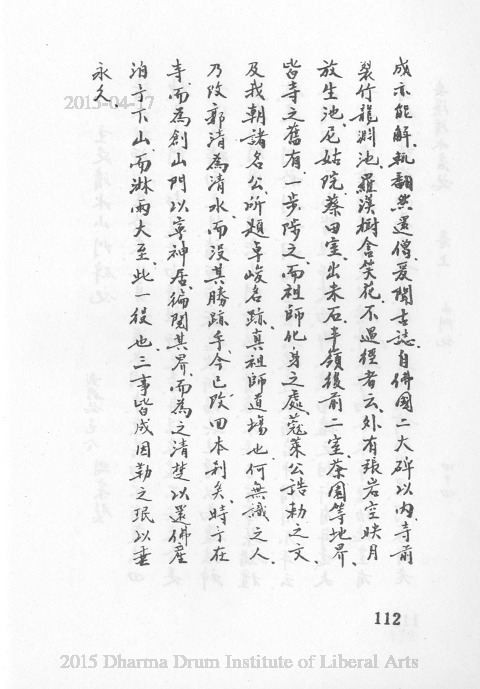 成亦能解執翻然還僧爰閱古誌自佛國二大碑以內寺前
裂竹龍渊池羅漢樹含笑花不過徑者云外有張岩室映月
放生池尼姑院蔡田室出米石半嶺後前二室茶園等地界
皆寺之舊有一步陟之而祖師化身之處蔻萊公誥勅之文
及我朝諸名公所題卓峻名跡真祖師道場也何無識之人
乃改郭清為清水而没其勝跡乎今已改回本刹矣時予在
寺而為創山門以寧神居徧閱其界而為之清楚以還佛產
洎予下山而淋雨大至此一役也三事皆成因勒之珉以垂
永久
112
2015-04-17
2015 Dharma Drum Institute of Liberal Arts